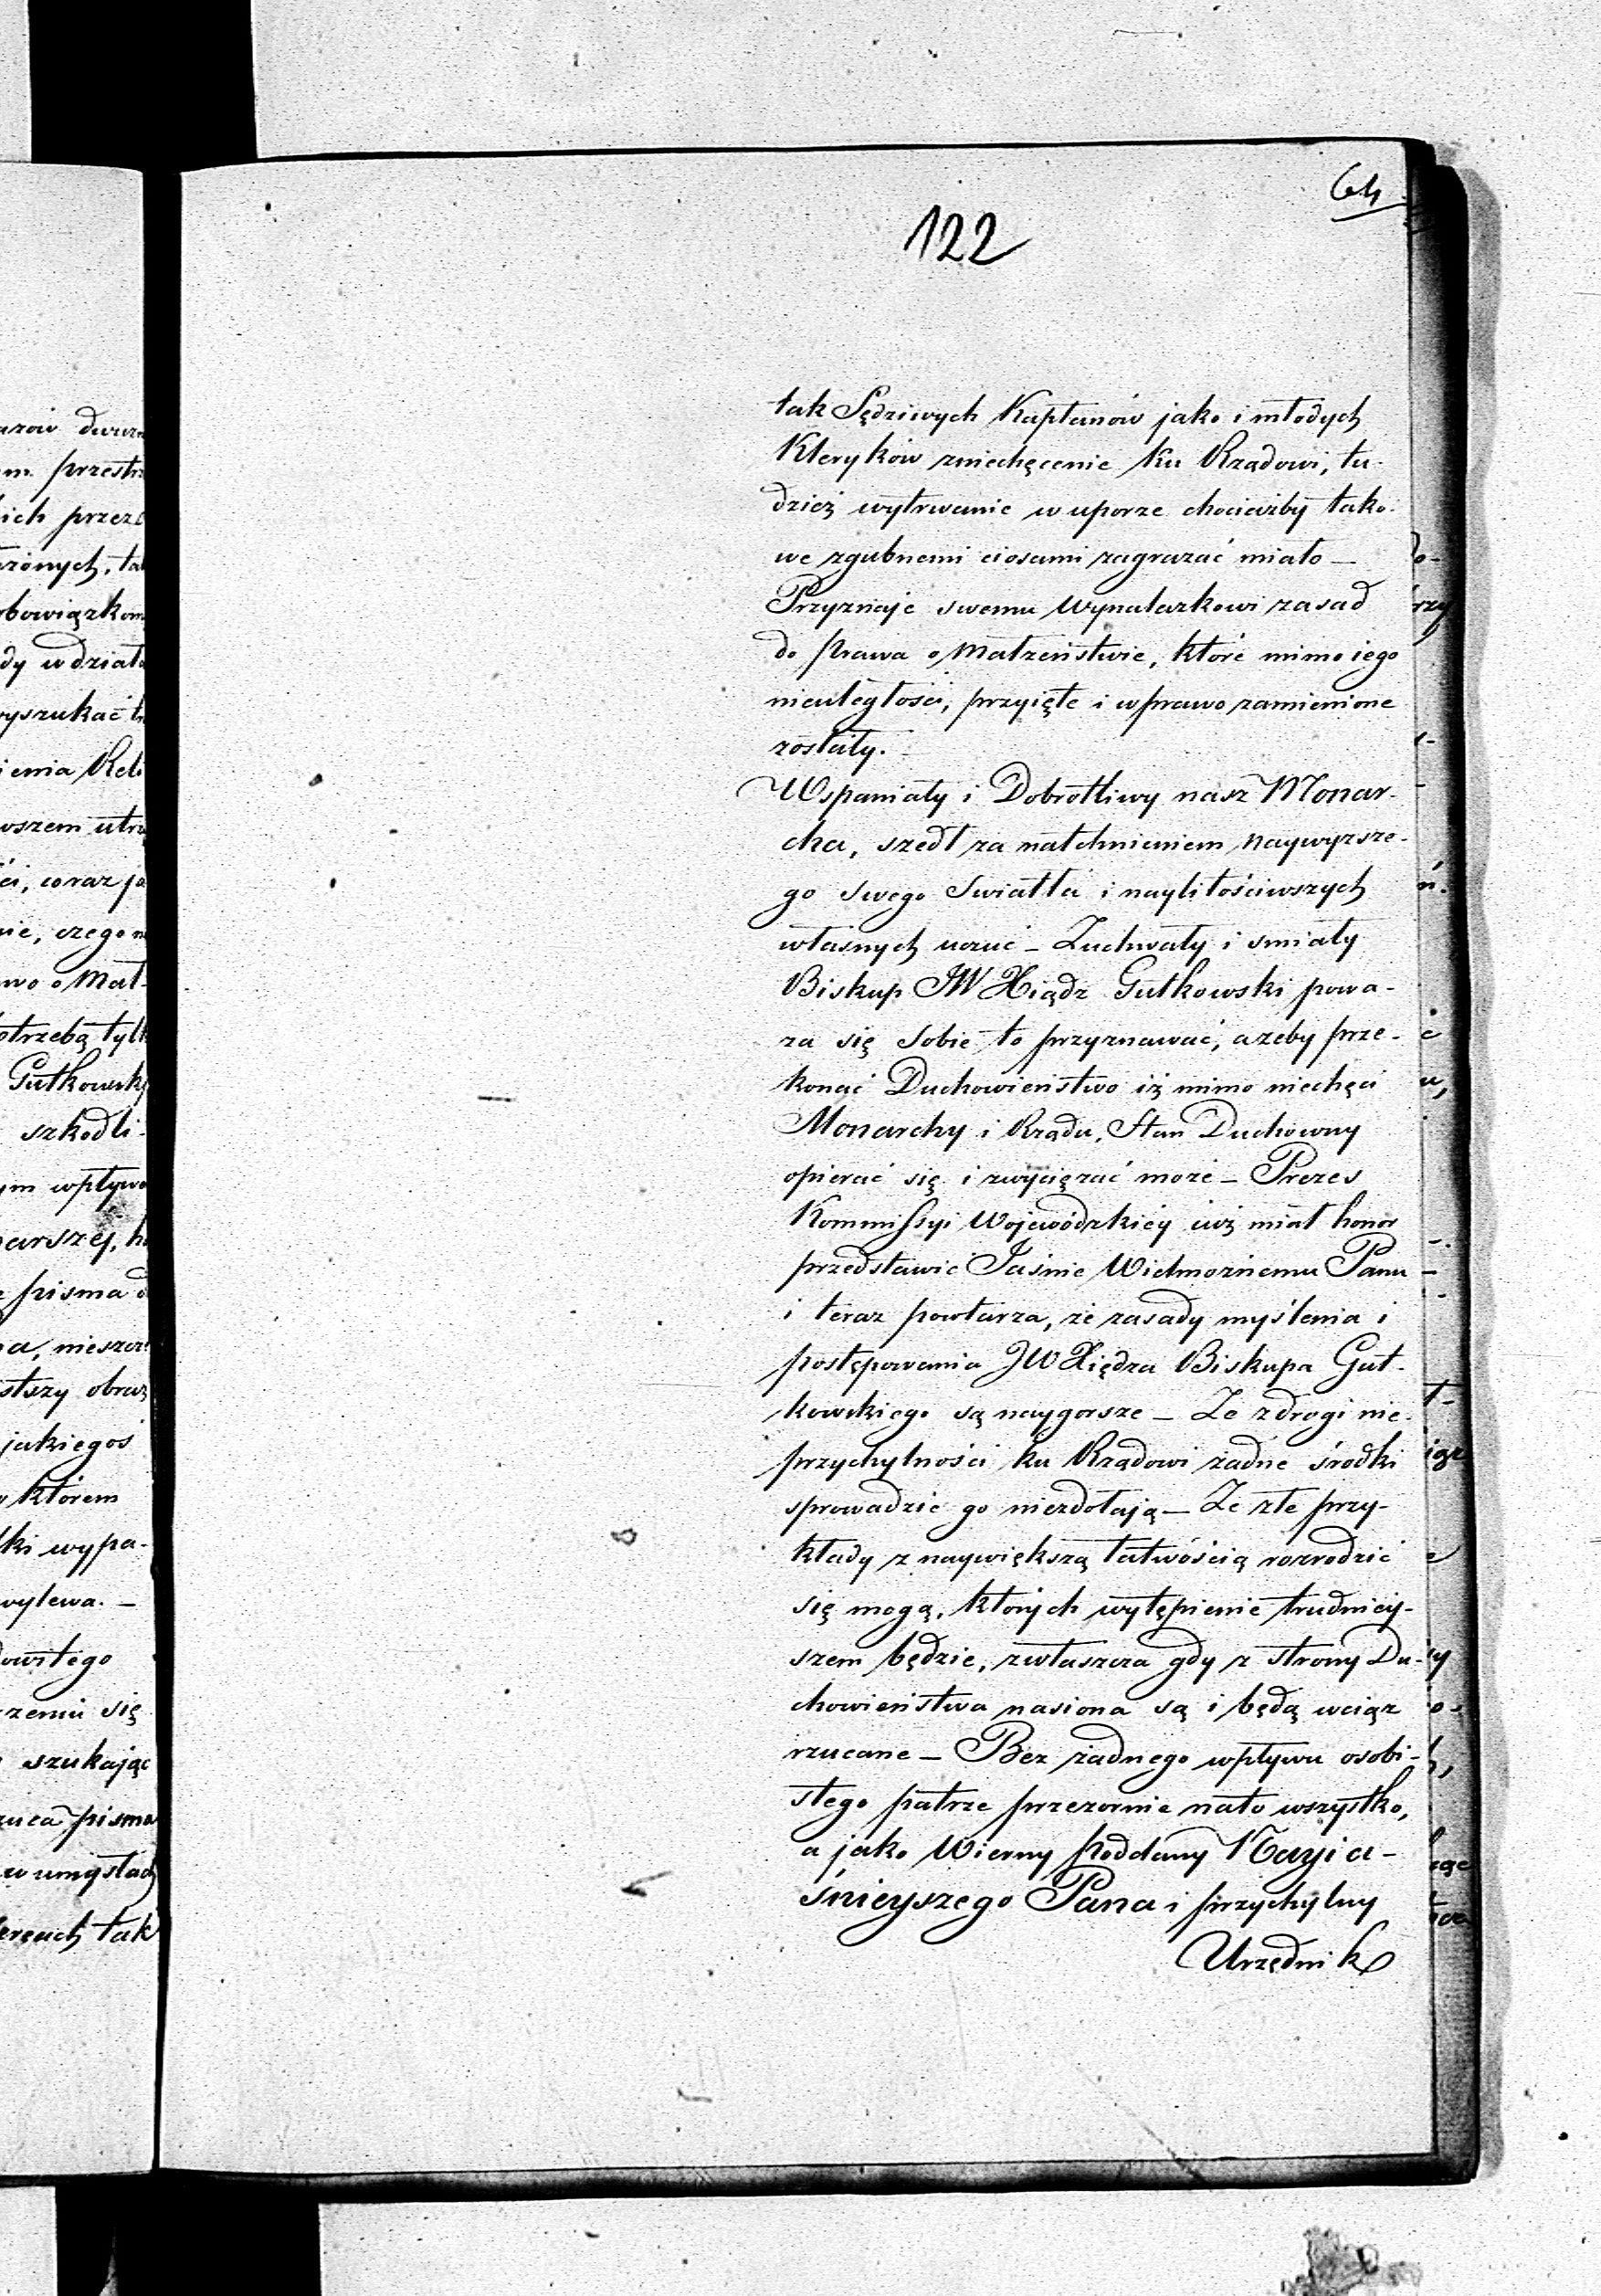 64
122
tak Sędziwych Kapłanów jako i młodych
Kleryków zniechęcenie ku Rządowi, tu-
dzież wytrwanie w uporze chociażby tako-
we zgubnemi ciosami zagrażać miało —
Przyznaje swemu wynalazkowi zasad
do prawa o Małżeństwie, które mimo iego
nieuległości, przyięte i w prawo zamienione
zostały.
Wspaniały i Dobrotliwy nasz Monar-
cha, szedł za natchnieniem naywyższe-
go swego Swiatła i naylitościwszych
własnych uczuć — Zuchwały i smiały
Biskup JW Xiądz Gutkowski powa-
za się sobie to przyznawać, azeby prze-
konać Duchowieństwo iż mimo niechęci
Monarchy i Rządu, Stan Duchowny
opierać się i zwyciężać może — Prezes
Kommissyi Wojewódzkiéy iuż miał honor
przedstawic Jaśnie Wielmożnemu Panu
i teraz powtarza, że zasady myślenia i
postępowania JW Xiędza Biskupa Gut-
kowskiego są naygorsze — Ze z drogi nie-
przychylności ku Rządowi żadne środki
sprowadzic go niezdołają — Ze złe przy-
kłady z naywiększą łatwością rozrodzić
się mogą, których wytępienie trudniey-
szem będzie, zwłaszcza gdy z strony Du-
chowieństwa nasiona są i będą wciąz
rzucane — Bez żadnego wpływu osobi-
stego patrze przezornie nato wszystko,
a jako Wierny Poddany Nayia-
śnieyszego Pana i przychylny
Urzędnik